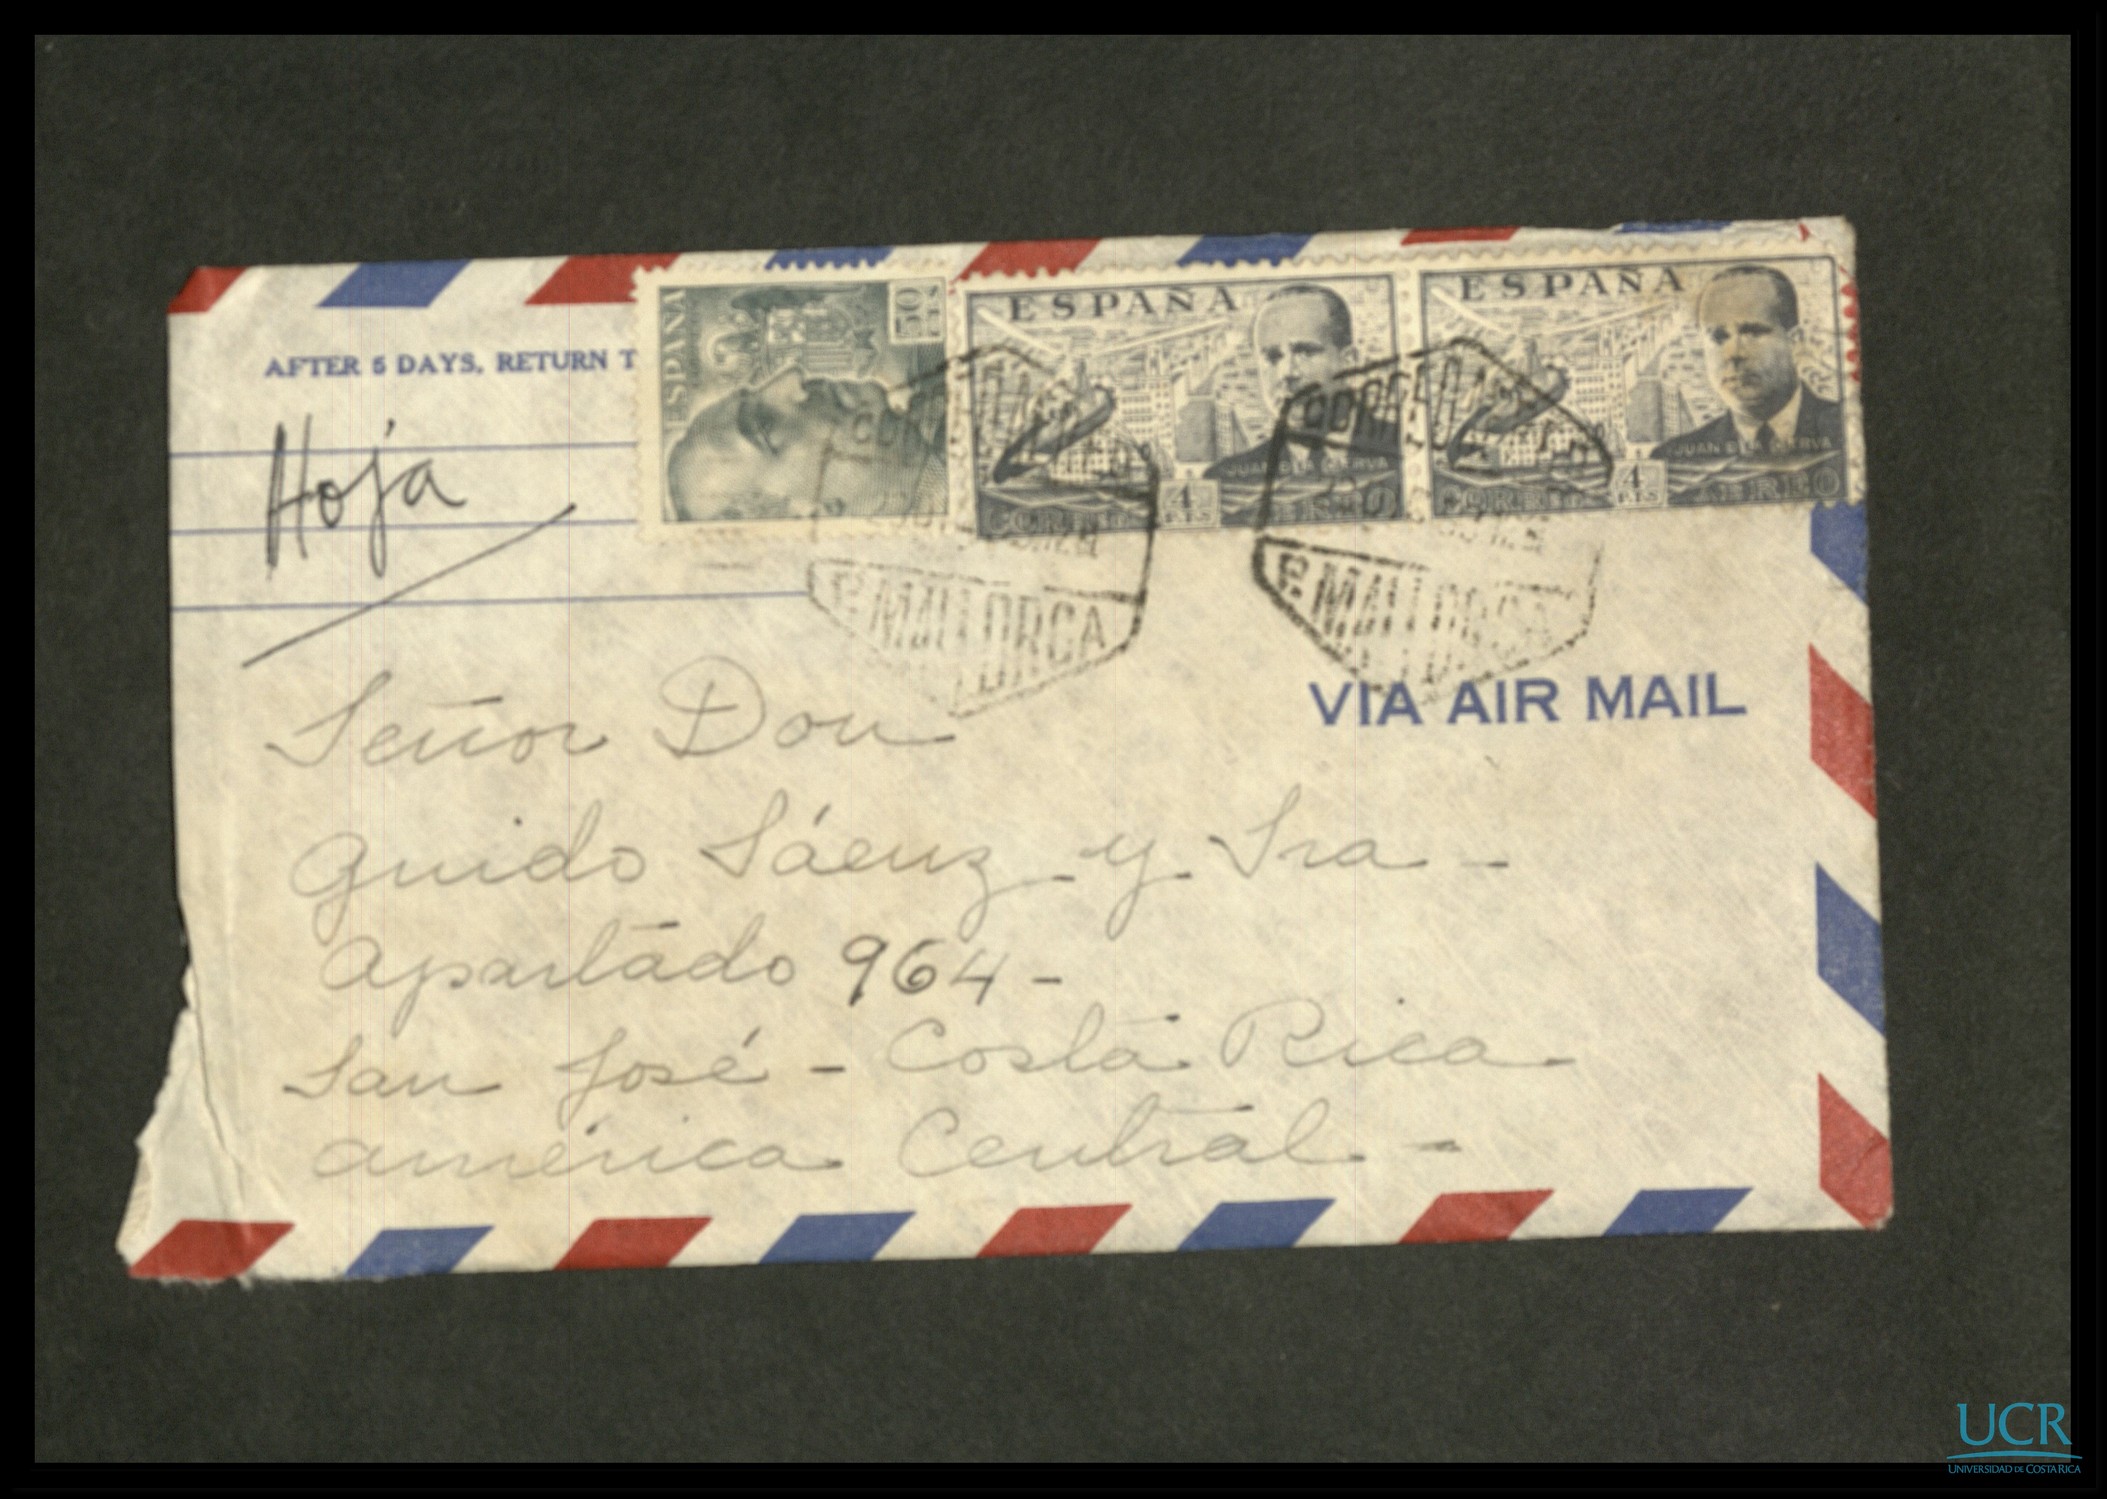 AFTER 5 DAYS, RETURN T
Hoja
ESPAÑA
50
ESPAÑA
JUAN D LA CIERVA
4
PTS
CORREO AEREO
ESPAÑA
JUAN D LA CIERVA
4
PTS
CORREO AEREO
CORREO
P. MALLORCA
CORREO
P. MALLORCA
VIA AIR MAIL
Señor Don
Guido Sáenz y Sra -
Apartado 964 -
San José - Costa Rica
América Central -
UCR
UNIVERSIDAD DE COSTA RICA